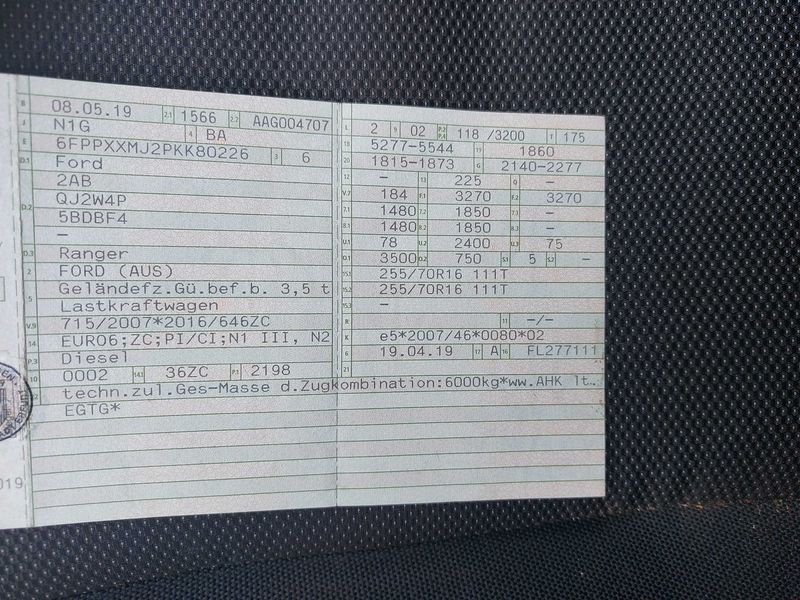 B 08.05.19 2.1 1566 2.2 AAG004707
J N1G 4 BA
E 6FPPXXMJ2PKK80226 3 6
D.1 Ford
2AB
QJ2W4P
D.2 5BDBF4
–
D.3 Ranger
2 FORD (AUS)
5 Geländefz.Gü.bef.b. 3,5 t
Lastkraftwagen
V.9 715/2007*2016/646ZC
14 EURO6;ZC;PI/CI;N1 III, N2
P.3 Diesel
10 0002 14.1 36ZC P.1 2198
L 2 9 02 P.2 P.4 118 /3200 T 175
18 5277-5544 19 1860
20 1815-1873 G 2140-2277
12 – 13 225 Q –
V.7 184 F.1 3270 F.2 3270
7.1 1480 7.2 1850 7.3 –
8.1 1480 8.2 1850 8.3 –
U.1 78 U.2 2400 U.3 75
O.1 3500 O.2 750 S.1 5 S.2 –
15.1 255/70R16 111T
15.2 255/70R16 111T
15.3 –
R 11 –/–
K e5*2007/46*0080*02
6 19.04.19 17 A 16 FL277111
21
techn.zul.Ges-Masse d.Zugkombination:6000kg*ww.AHK lt..
EGTG*
019